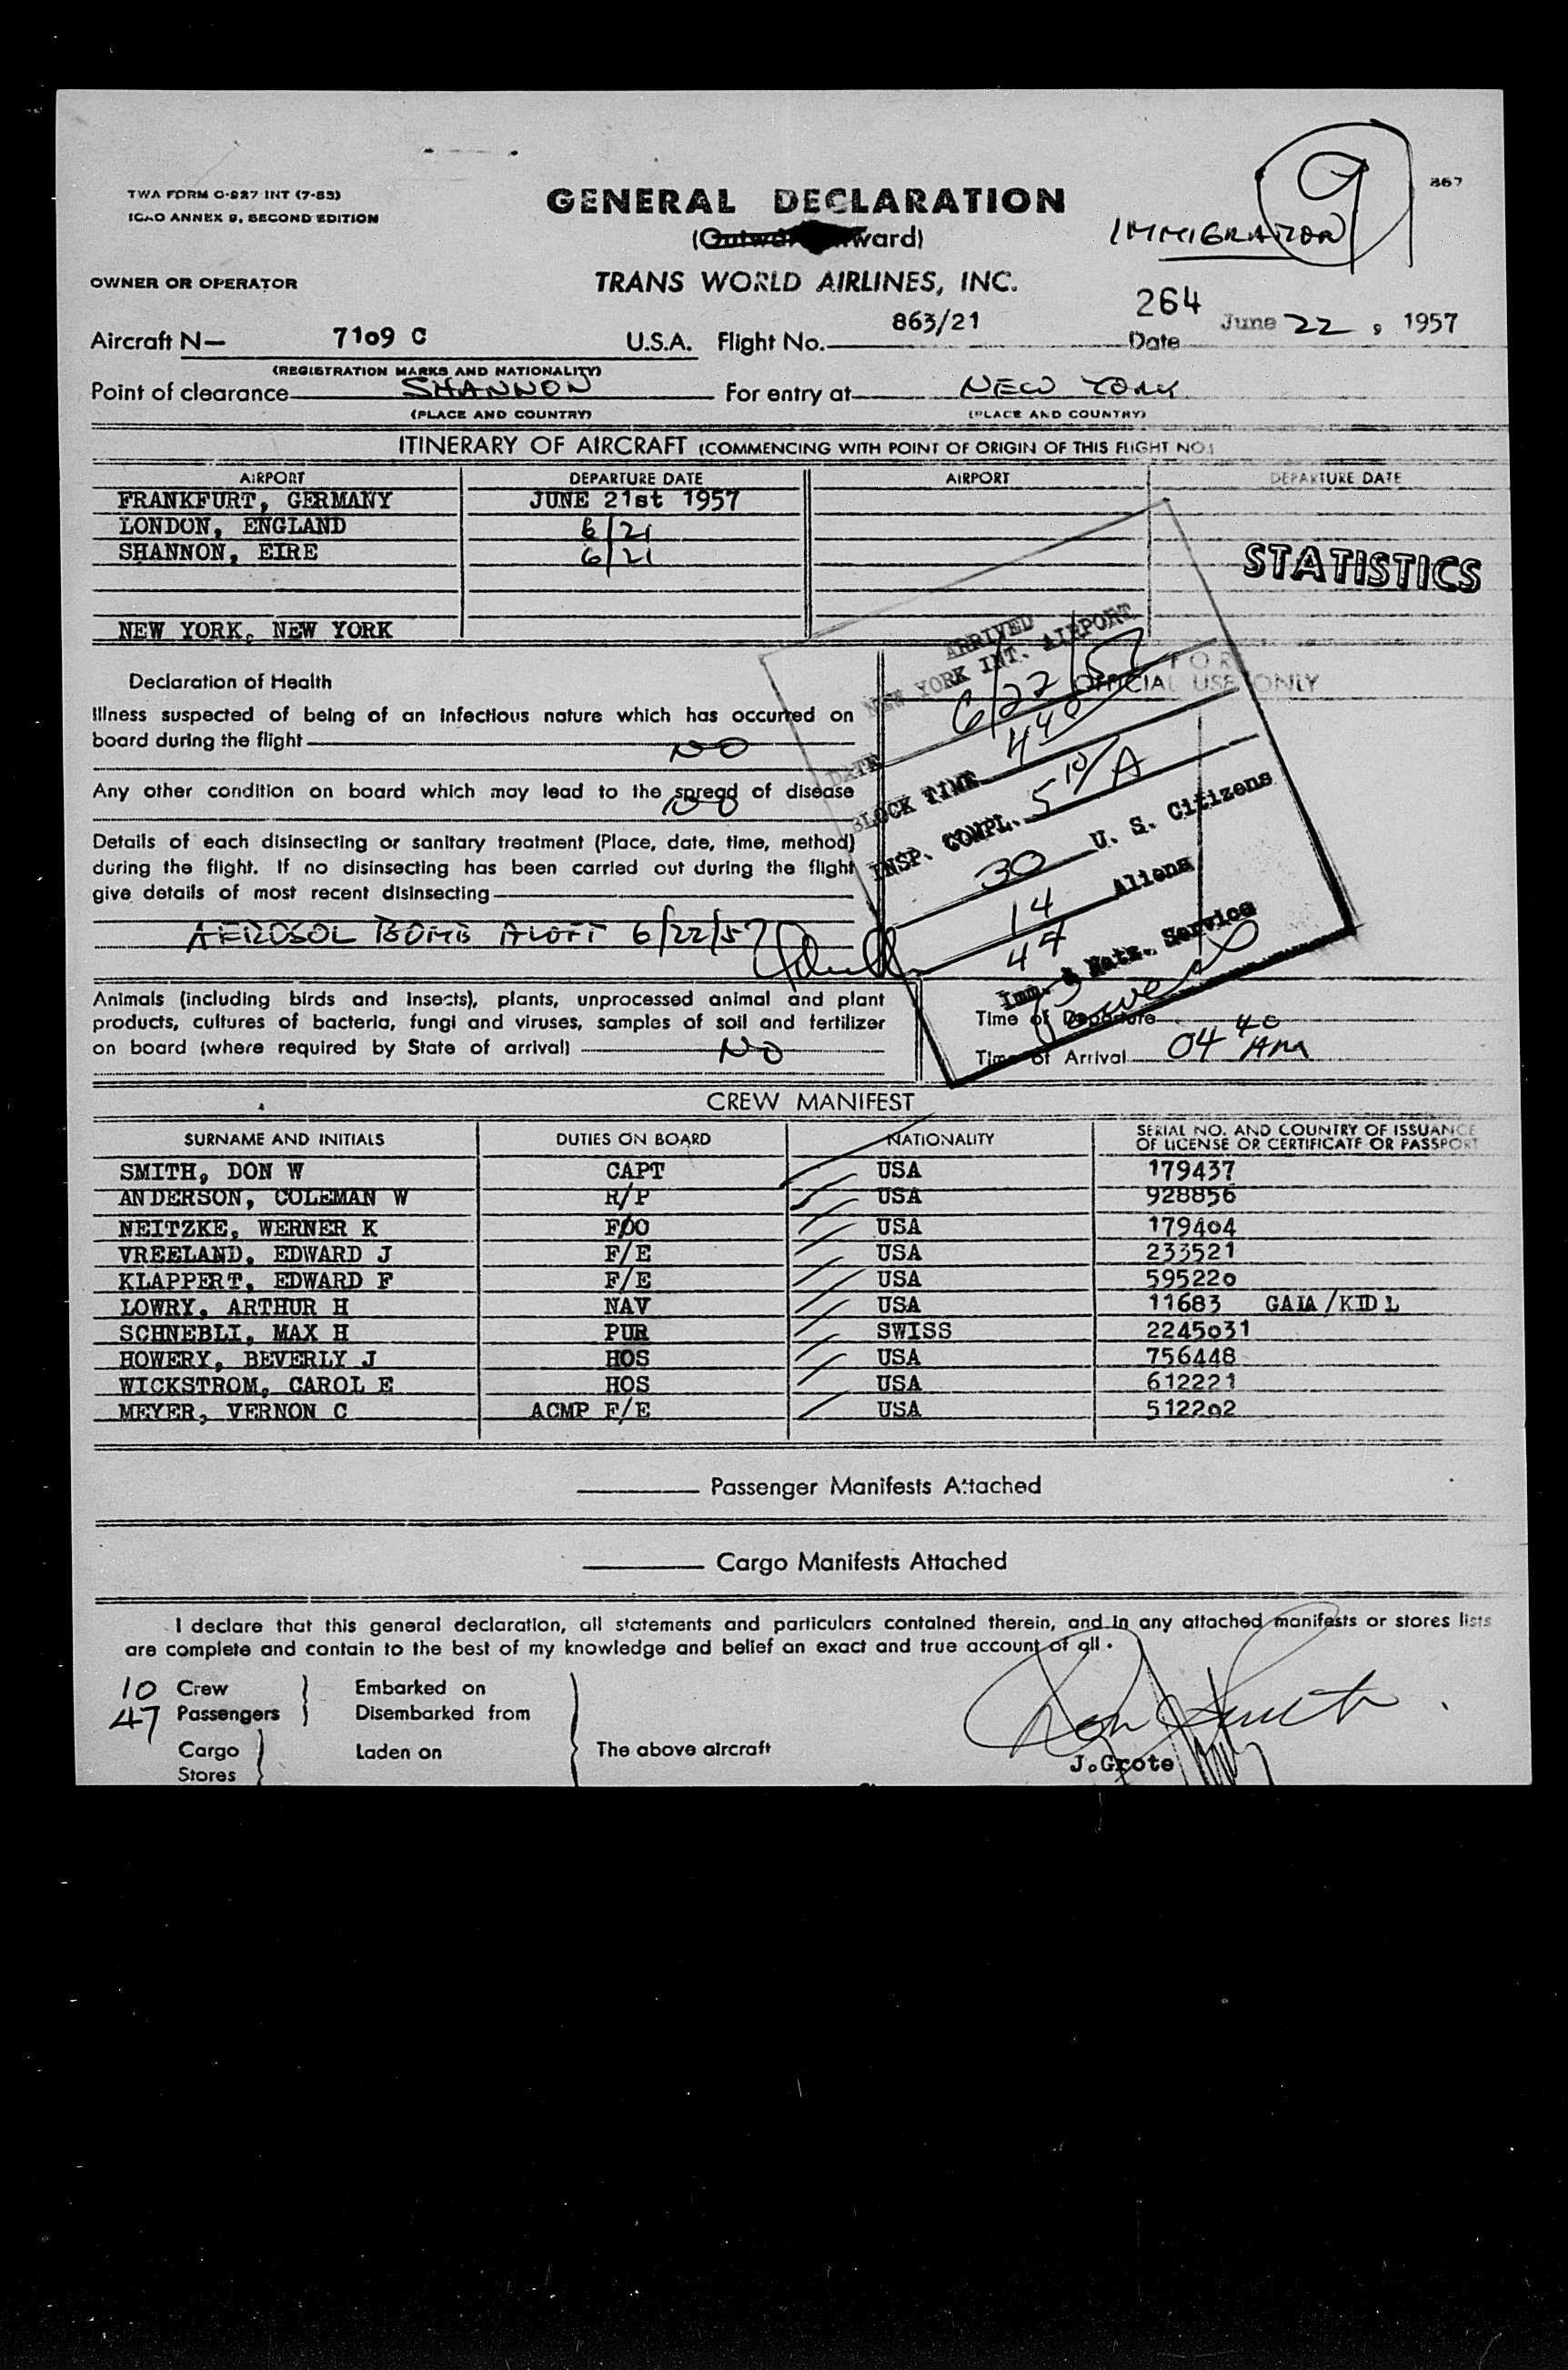 TWA FORM O-927 INT (7-53)
ICAO ANNEX 9, SECOND EDITION
GENERAL DECLARATION
9
867
IMMIGRATION
OWNER OR OPERATOR
TRANS WORLD AIRLINES, INC.
Aircraft N— 7109 C U.S.A. Flight No. 863/21 264 Date June 22, 1957
(REGISTRATION MARKS AND NATIONALITY)
Point of clearance SHANNON For entry at NEW YORK
(PLACE AND COUNTRY) (PLACE AND COUNTRY)
ITINERARY OF AIRCRAFT (COMMENCING WITH POINT OF ORIGIN OF THIS FLIGHT NO.)
AIRPORT DEPARTURE DATE AIRPORT DEPARTURE DATE
FRANKFURT, GERMANY JUNE 21st 1957
LONDON, ENGLAND 6/21
SHANNON, EIRE 6/21
STATISTICS
NEW YORK, NEW YORK
ARRIVED
NEW YORK INT. AIRPORT
DATE 6/22/57
BLOCK TIME 440
INSP. COMPL. 5 10/A
30 U. S. Citizens
14 Aliens
Imm. & Natz. Service
FOR
OFFICIAL USE ONLY
Declaration of Health
Illness suspected of being of an infectious nature which has occurred on
board during the flight NO
Any other condition on board which may lead to the spread of disease
NO
Details of each disinsecting or sanitary treatment (Place, date, time, method)
during the flight. If no disinsecting has been carried out during the flight
give details of most recent disinsecting
AEROSOL BOMB ALOFT 6/22/57
Animals (including birds and insects), plants, unprocessed animal and plant
products, cultures of bacteria, fungi and viruses, samples of soil and fertilizer
on board (where required by State of arrival) NO
Time of Departure
Time of Arrival 04 40 AM
CREW MANIFEST
SURNAME AND INITIALS DUTIES ON BOARD NATIONALITY SERIAL NO. AND COUNTRY OF ISSUANCE
OF LICENSE OR CERTIFICATE OR PASSPORT
SMITH, DON W CAPT USA 179437
ANDERSON, COLEMAN W R/P USA 928856
NEITZKE, WERNER K F/O USA 179404
VREELAND, EDWARD J F/E USA 233521
KLAPPERT, EDWARD F F/E USA 595220
LOWRY, ARTHUR H NAV USA 11683 GAIA/KIDL
SCHNEBLI, MAX H PUR SWISS 2245031
HOWERY, BEVERLY J HOS USA 756448
WICKSTROM, CAROL E HOS USA 612221
MEYER, VERNON C ACMP F/E USA 512202
Passenger Manifests Attached
Cargo Manifests Attached
I declare that this general declaration, all statements and particulars contained therein, and in any attached manifests or stores lists
are complete and contain to the best of my knowledge and belief an exact and true account of all.
10 Crew Embarked on
47 Passengers Disembarked from
Cargo Laden on The above aircraft
Stores
Don Smith
J.Grote